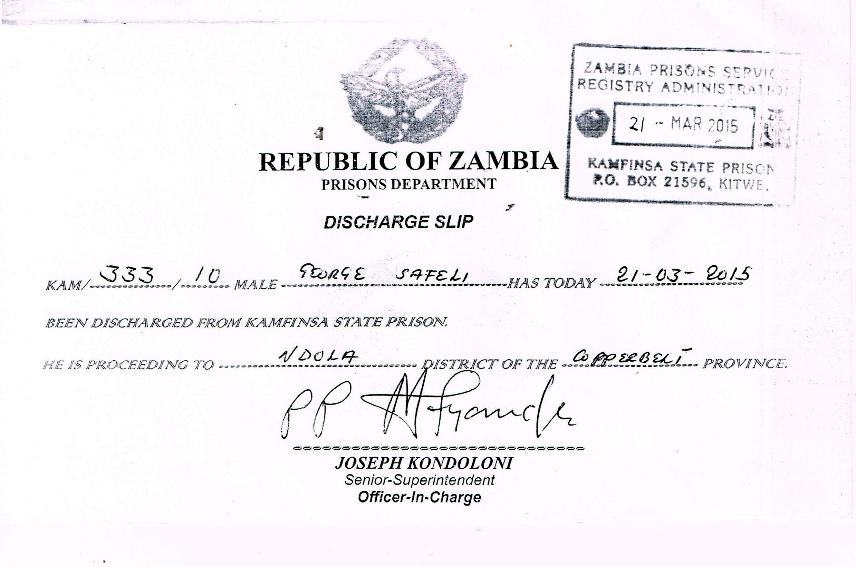 ZAMBIA PRISONS SERVIC
REGISTRY ADMINISTRATIO
21 - MAR 2015
KAMFINSA STATE PRISON
P.O. BOX 21596, KITWE.
REPUBLIC OF ZAMBIA
PRISONS DEPARTMENT
DISCHARGE SLIP
KAM/ 333 / 10 MALE GEORGE SAFELI HAS TODAY 21-03-2015
BEEN DISCHARGED FROM KAMFINSA STATE PRISON.
HE IS PROCEEDING TO NDOLA DISTRICT OF THE COPPERBELT PROVINCE.
PP
JOSEPH KONDOLONI
Senior-Superintendent
Officer-In-Charge